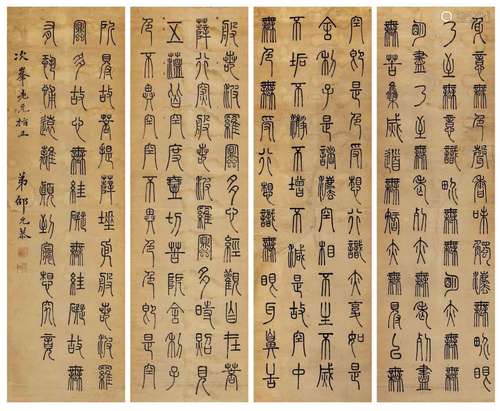 般若波羅蜜多心經觀自在菩
薩行深般若波羅蜜多時照見
五蘊皆空度一切苦厄舍利子
色不異空空不異色色即是空
空即是色受想行識亦復如是
舍利子是諸法空相不生不滅
不垢不淨不增不減是故空中
無色無受想行識無眼耳鼻舌
身意無色聲香味觸法無眼界
乃至無意識界無無明亦無無
明盡乃至無老死亦無老死盡
無苦集滅道無智亦無得以無
所得故菩提薩埵依般若波羅
蜜多故心無罣礙無罣礙故無
有恐怖遠離顛倒夢想究竟
次峯老兄指正
弟邵